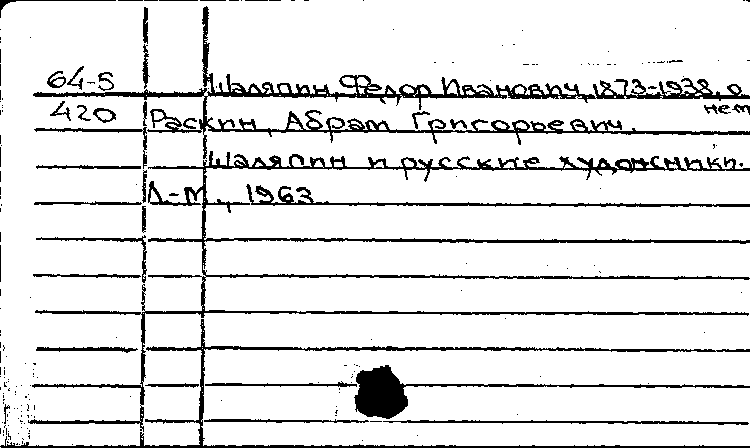 64-5 Шаляпин, Федор Иванович, 1873-1938, о нем
420 Раскин, Абрам Григорьевич.
Шаляпин и русские художники.
Л.-М., 1963.